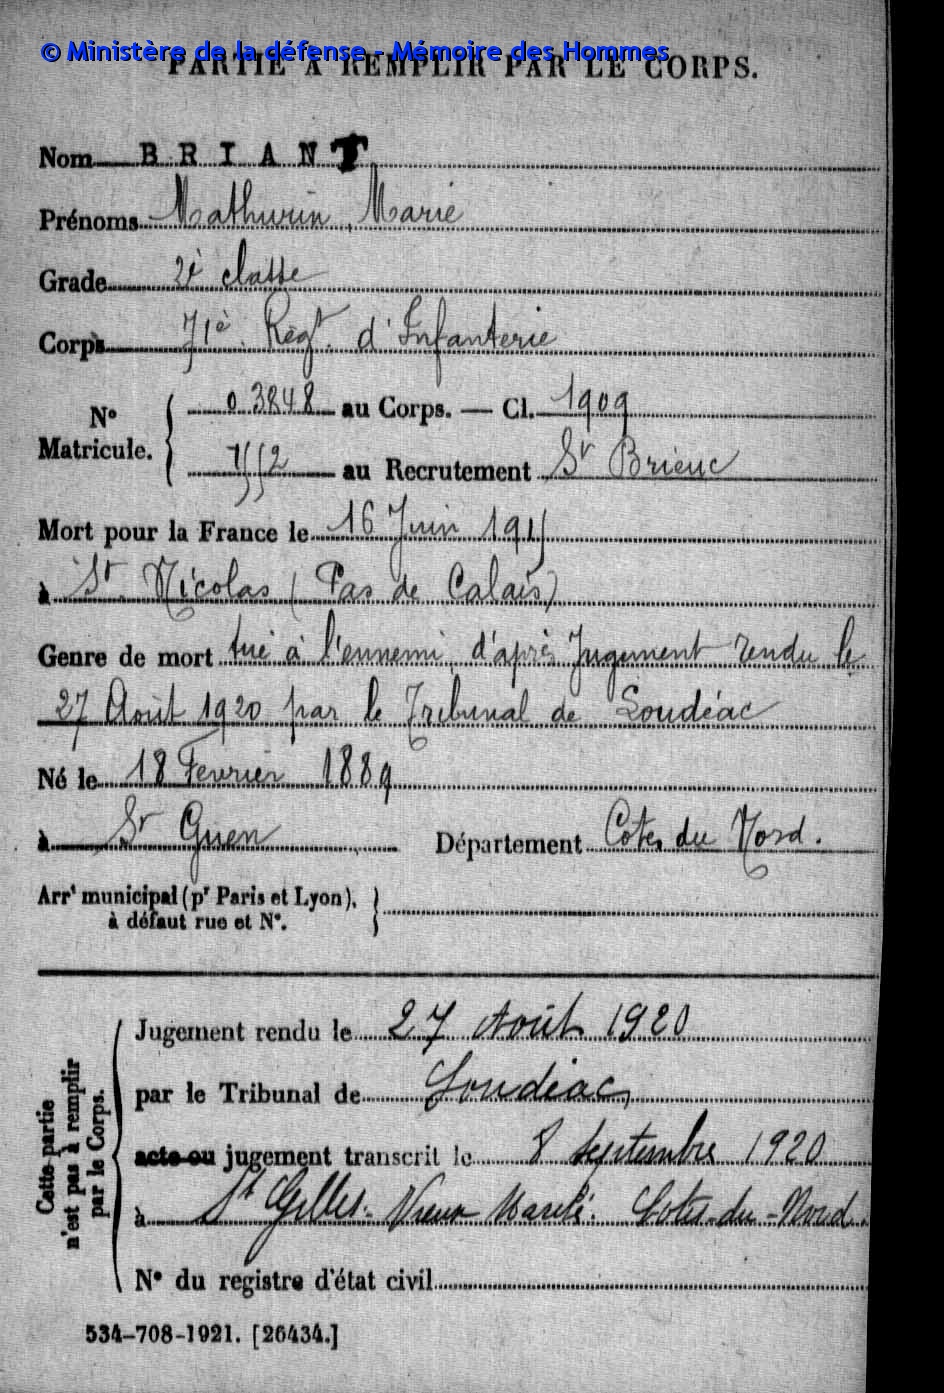 © Ministère de la défense - Mémoire des Hommes
PARTIE A REMPLIR PAR LE CORPS.
Nom BRIANT
Prénoms Mathurin, Marie
Grade 2è classe
Corps 71è Régt. d'Infanterie
N° Matricule. { 0.3848 au Corps. — Cl. 1909
1552 au Recrutement St Brieuc
Mort pour la France le 16 Juin 1915
à St. Nicolas (Pas de Calais)
Genre de mort tué à l'ennemi, d'après Jugement rendu le
27 Août 1920 par le Tribunal de Loudéac
Né le 18 Fevrier 1889
à St Guen Département Côtes du Nord.
Arrt municipal (pr Paris et Lyon),
à défaut rue et N°.
Cette partie
n'est pas à remplir
par le Corps.
Jugement rendu le 27 Août 1920
par le Tribunal de Loudéac,
acte ou jugement transcrit le 8 Septembre 1920
à St Gilles-Vieux Marché. Côtes-du-Nord.
N° du registre d'état civil
534-708-1921. [26434.]